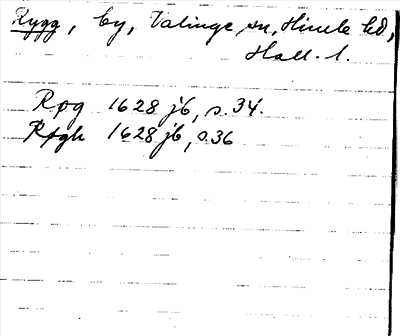 Rygg, by, Valinge sn, Himle hd,
Hall. l.
Røg 1628 jb, s. 34.
Røgh 1628 jb, s. 36